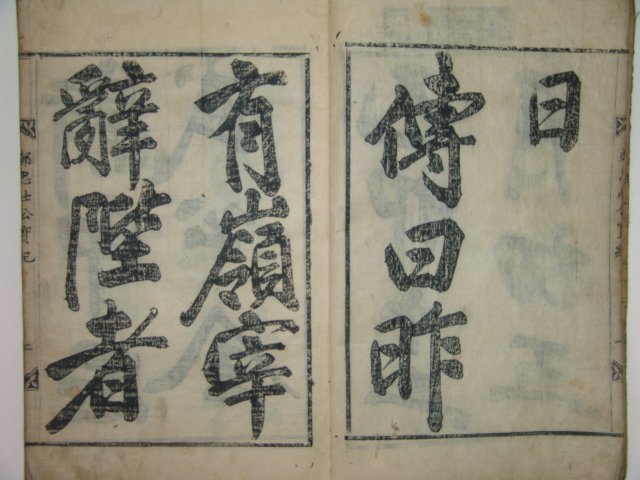 日
傳曰昨
有嶺宰
辭陛者